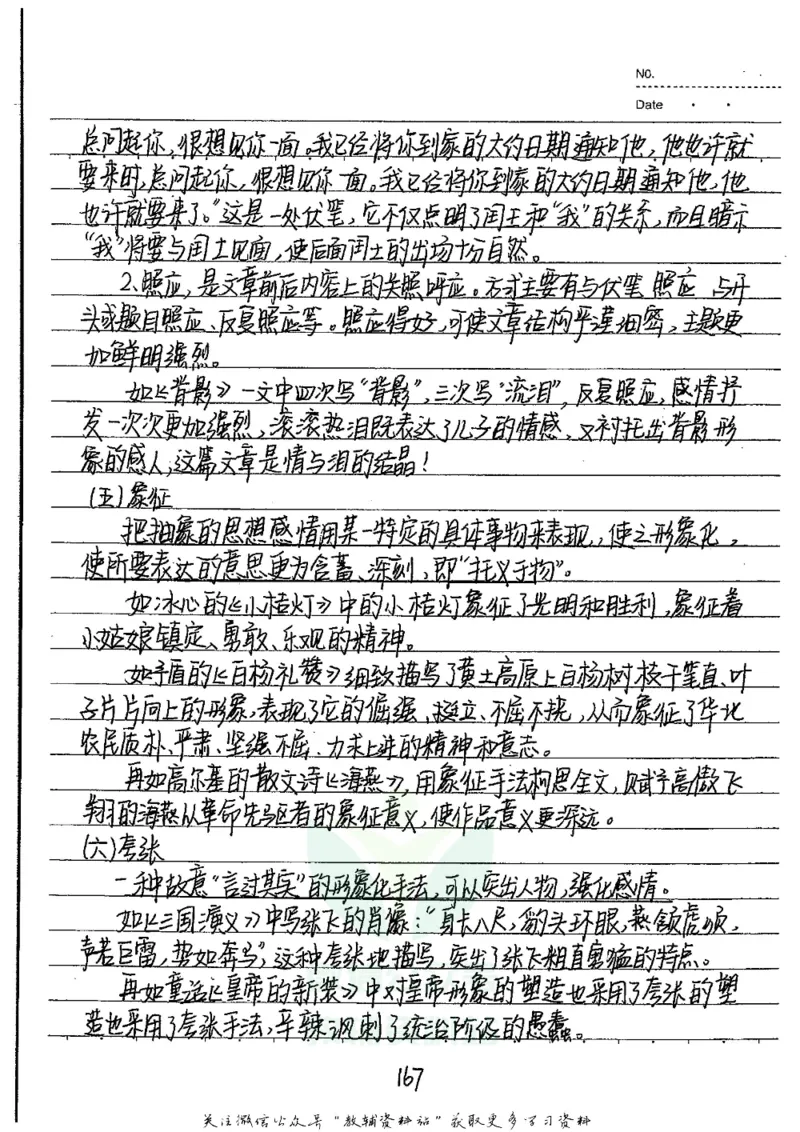 No.
Date
总问起你,很想见你一面。我已经将你到家的大约日期通知他,他也许就
要来时,总问起你,很想见你一面。我已经将你到家的大约日期通知他,他
也许就要来了。”这是一处伏笔,它不仅点明了闰土和“我”的关系,而且暗示
“我”将要与闰土见面,使后面闰土的出场十分自然。
2、照应,是文章前后内容上的关照呼应。方式主要有与伏笔照应、与开
头或题目照应、反复照应等。照应得好,可使文章结构严谨细密,主题更
加鲜明强烈。
如《背影》一文中四次写“背影”,三次写“流泪”,反复照应,感情抒
发一次次更加强烈,滚滚热泪既表达了儿子的情感,又衬托出背影形
象的感人,这篇文章是情与泪的结晶!
(五)象征
把抽象的思想感情用某一特定的具体事物来表现,使之形象化,
使所要表达的意思更为含蓄、深刻,即“托义于物”。
如冰心的《小桔灯》中的小桔灯象征了光明和胜利,象征着
小姑娘镇定、勇敢、乐观的精神。
如矛盾的《白杨礼赞》细致描写了黄土高原上白杨树枝干笔直、叶
子片片向上的形象,表现了它的倔强、挺立、不屈不挠,从而象征了华北
农民质朴、严肃、坚强不屈、力求上进的精神和意志。
再如高尔基的散文诗《海燕》,用象征手法构思全文,赋予高傲飞
翔的海燕以革命先驱者的象征意义,使作品意义更深远。
(六)夸张
一种故意“言过其实”的形象化手法,可以突出人物,强化感情。
如《三国演义》中写张飞的肖像:“身长八尺,豹头环眼,燕颔虎须,
声若巨雷,势如奔马”,这种夸张地描写,突出了张飞粗直勇猛的特点。
再如童话《皇帝的新装》中对皇帝形象的塑造也采用了夸张的塑
造也采用了夸张手法,辛辣讽刺了统治阶级的愚蠢。
167
关注微信公众号“教辅资料站”获取更多学习资料